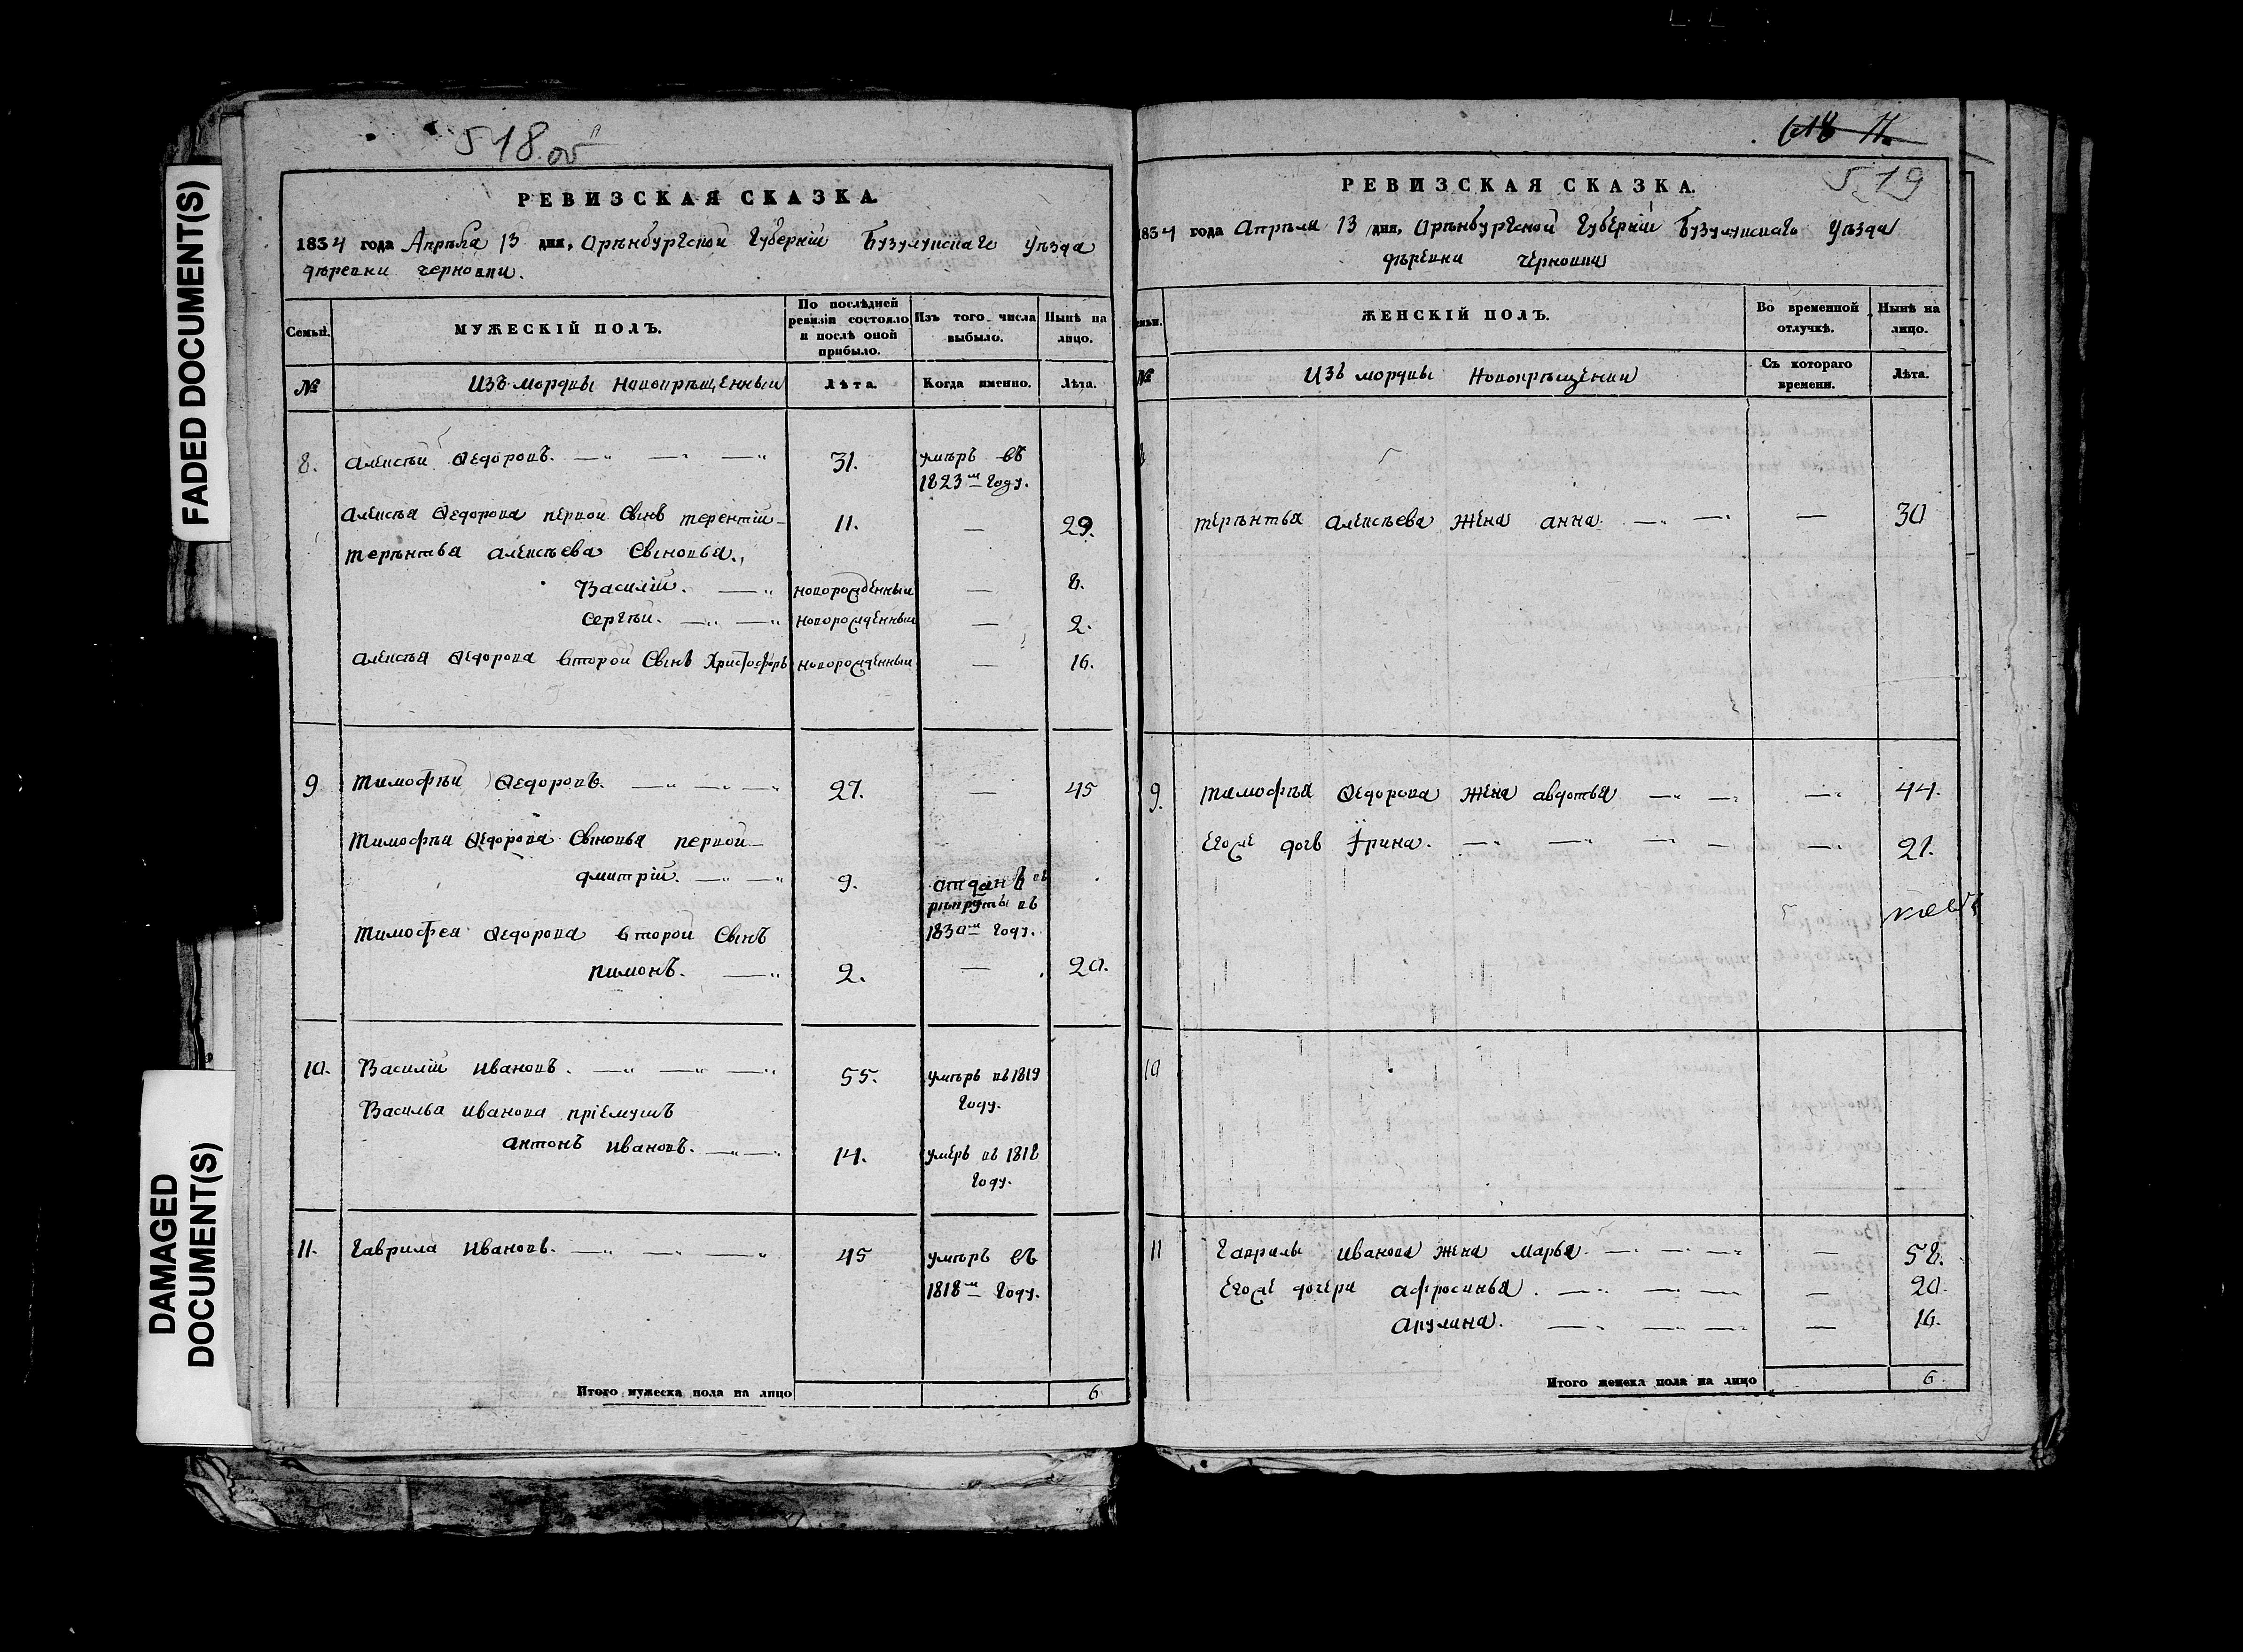 FADED DOCUMENT(S)
DAMAGED
DOCUMENT(S)
518.об
РЕВИЗСКАЯ СКАЗКА.
1834 года Апрѣла 13 дня, Орѣнбургской Губерніи Бузулукскаго уѣзда
дѣревни черновки.
Семьи.
МУЖЕСКІЙ ПОЛЪ.
По послѣдней ревизіи состояло и послѣ оной прибыло.
Изъ того числа выбыло.
Нынѣ на лицо.
№
Изъ мордвы новокрѣщенныи
Лѣта.
Когда именно.
Лѣта.
8. Алексѣй Ѳедоровъ. 31. умѣръ въ
1823м году.
Алексѣя Ѳедорова первой Сынъ терентіи 11. — 29.
терѣнтья алексѣева Сыновья.,
Василіи. новорожденныи — 8.
Сергѣи. новорожденныи — 2.
Алексѣя Ѳедорова второй Сынъ Христофоръ новорожденныи — 16.
9 Тимофѣй Ѳедоровъ. 27. — 45
Тимофѣя Ѳедорова Сыновья первой
дмитріи. 9. отданъ въ
рѣкруты въ
Тимофея Ѳедорова второй Сынъ 1830м году.
пимонъ. 2. — 20.
10. Василіи ивановъ. 55. умѣръ въ 1819
году.
Василья иванова пріемушъ
антонъ ивановъ. 14. умеръ въ 1818
году.
11. Гаврила ивановъ. 45 умѣръ въ
1818м году.
Итого мужеска пола на лицо 6
519
РЕВИЗСКАЯ СКАЗКА.
1834 года Апрѣли 13 дня, Орѣнбургской Губерніи Бузулукскаго уѣзда
дѣревни черновки
ЖЕНСКІЙ ПОЛЪ.
Во временной отлучкѣ.
Нынѣ на лицо.
№
Изъ мордвы новокрѣщенки
Съ котораго времени.
Лѣта.
терѣнтья алексѣева жена анна. — 30
9. тимофѣя Ѳедорова жена авдотья — 44.
Егоже дочь Ирина. — 21.
10
11 Гаврилы иванова жена марья. — 58.
Егоже дочери афросинья. — 20.
акулина. — 16.
Итого женска пола на лицо 6